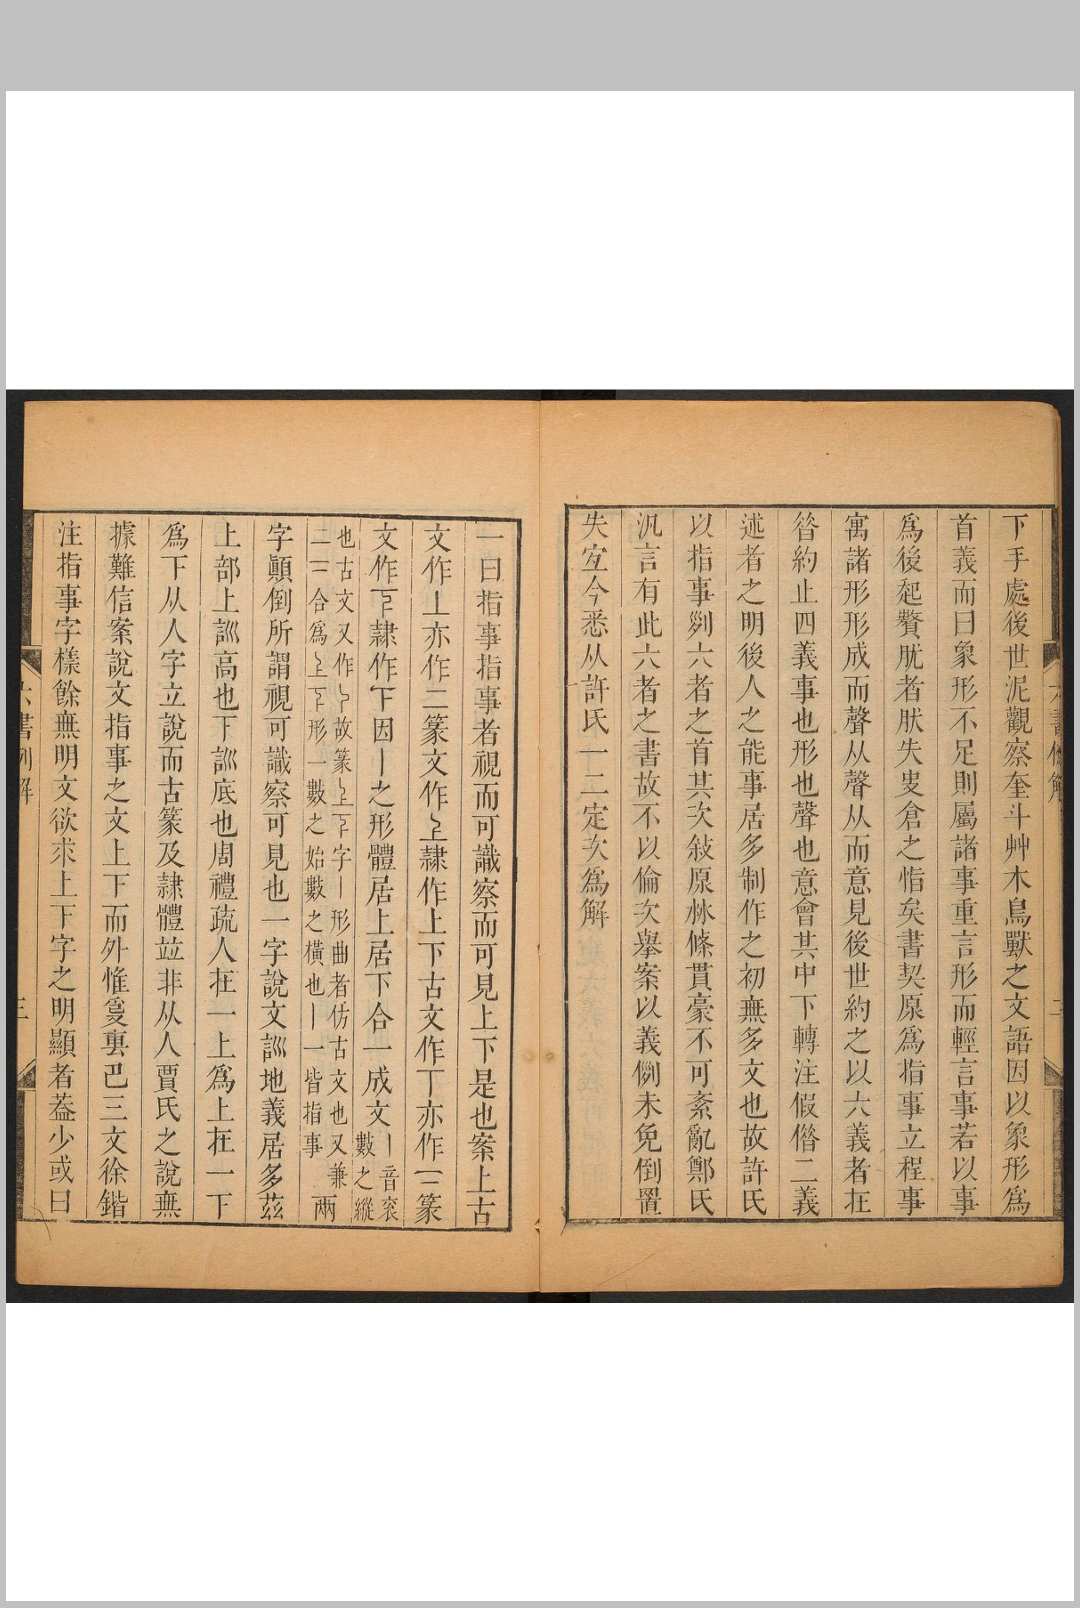 下手處後世泥觀察奎斗艸木鳥獸之文語因以象形爲
首義而曰象形不足則屬諸事重言形而輕言事若以事
爲後起贅肬者肰失叓倉之恉矣書契原爲指事立程事
寓諸形形成而聲从聲从而意見後世約之以六義者在
昝約止四義事也形也聲也意會其中下轉注假偺二義
述者之明後人之能事居多制作之初無多文也故許氏
以指事列六者之首其次敍原林條貫豪不可紊亂鄭氏
汎言有此六者之書故不以倫次舉案以義例未免倒置
失宐今悉从許氏一二定次爲解
一曰指事指事者視而可識察而可見上下是也案上古
文作丄亦作二篆文作𠄞隷作上下古文作丅亦作二篆
文作𠄟隷作下因丨之形體居上居下合一成文丨音衮數之縱
也古文又作故篆字丨形曲者仿古文也又兼兩
二二合爲形一數之始數之橫也丨一皆指事
字顚倒所謂視可識察可見也一字說文訓地義居多茲
上部上訓高也下訓底也周禮疏人在一上爲上在一下
爲下从人字立說而古篆及隷體竝非从人賈氏之說無
據難信案說文指事之文上下而外惟叀巴三文徐鍇
注指事字樣餘無明文欲求上下字之明顯者葢少或曰
六書例解
三